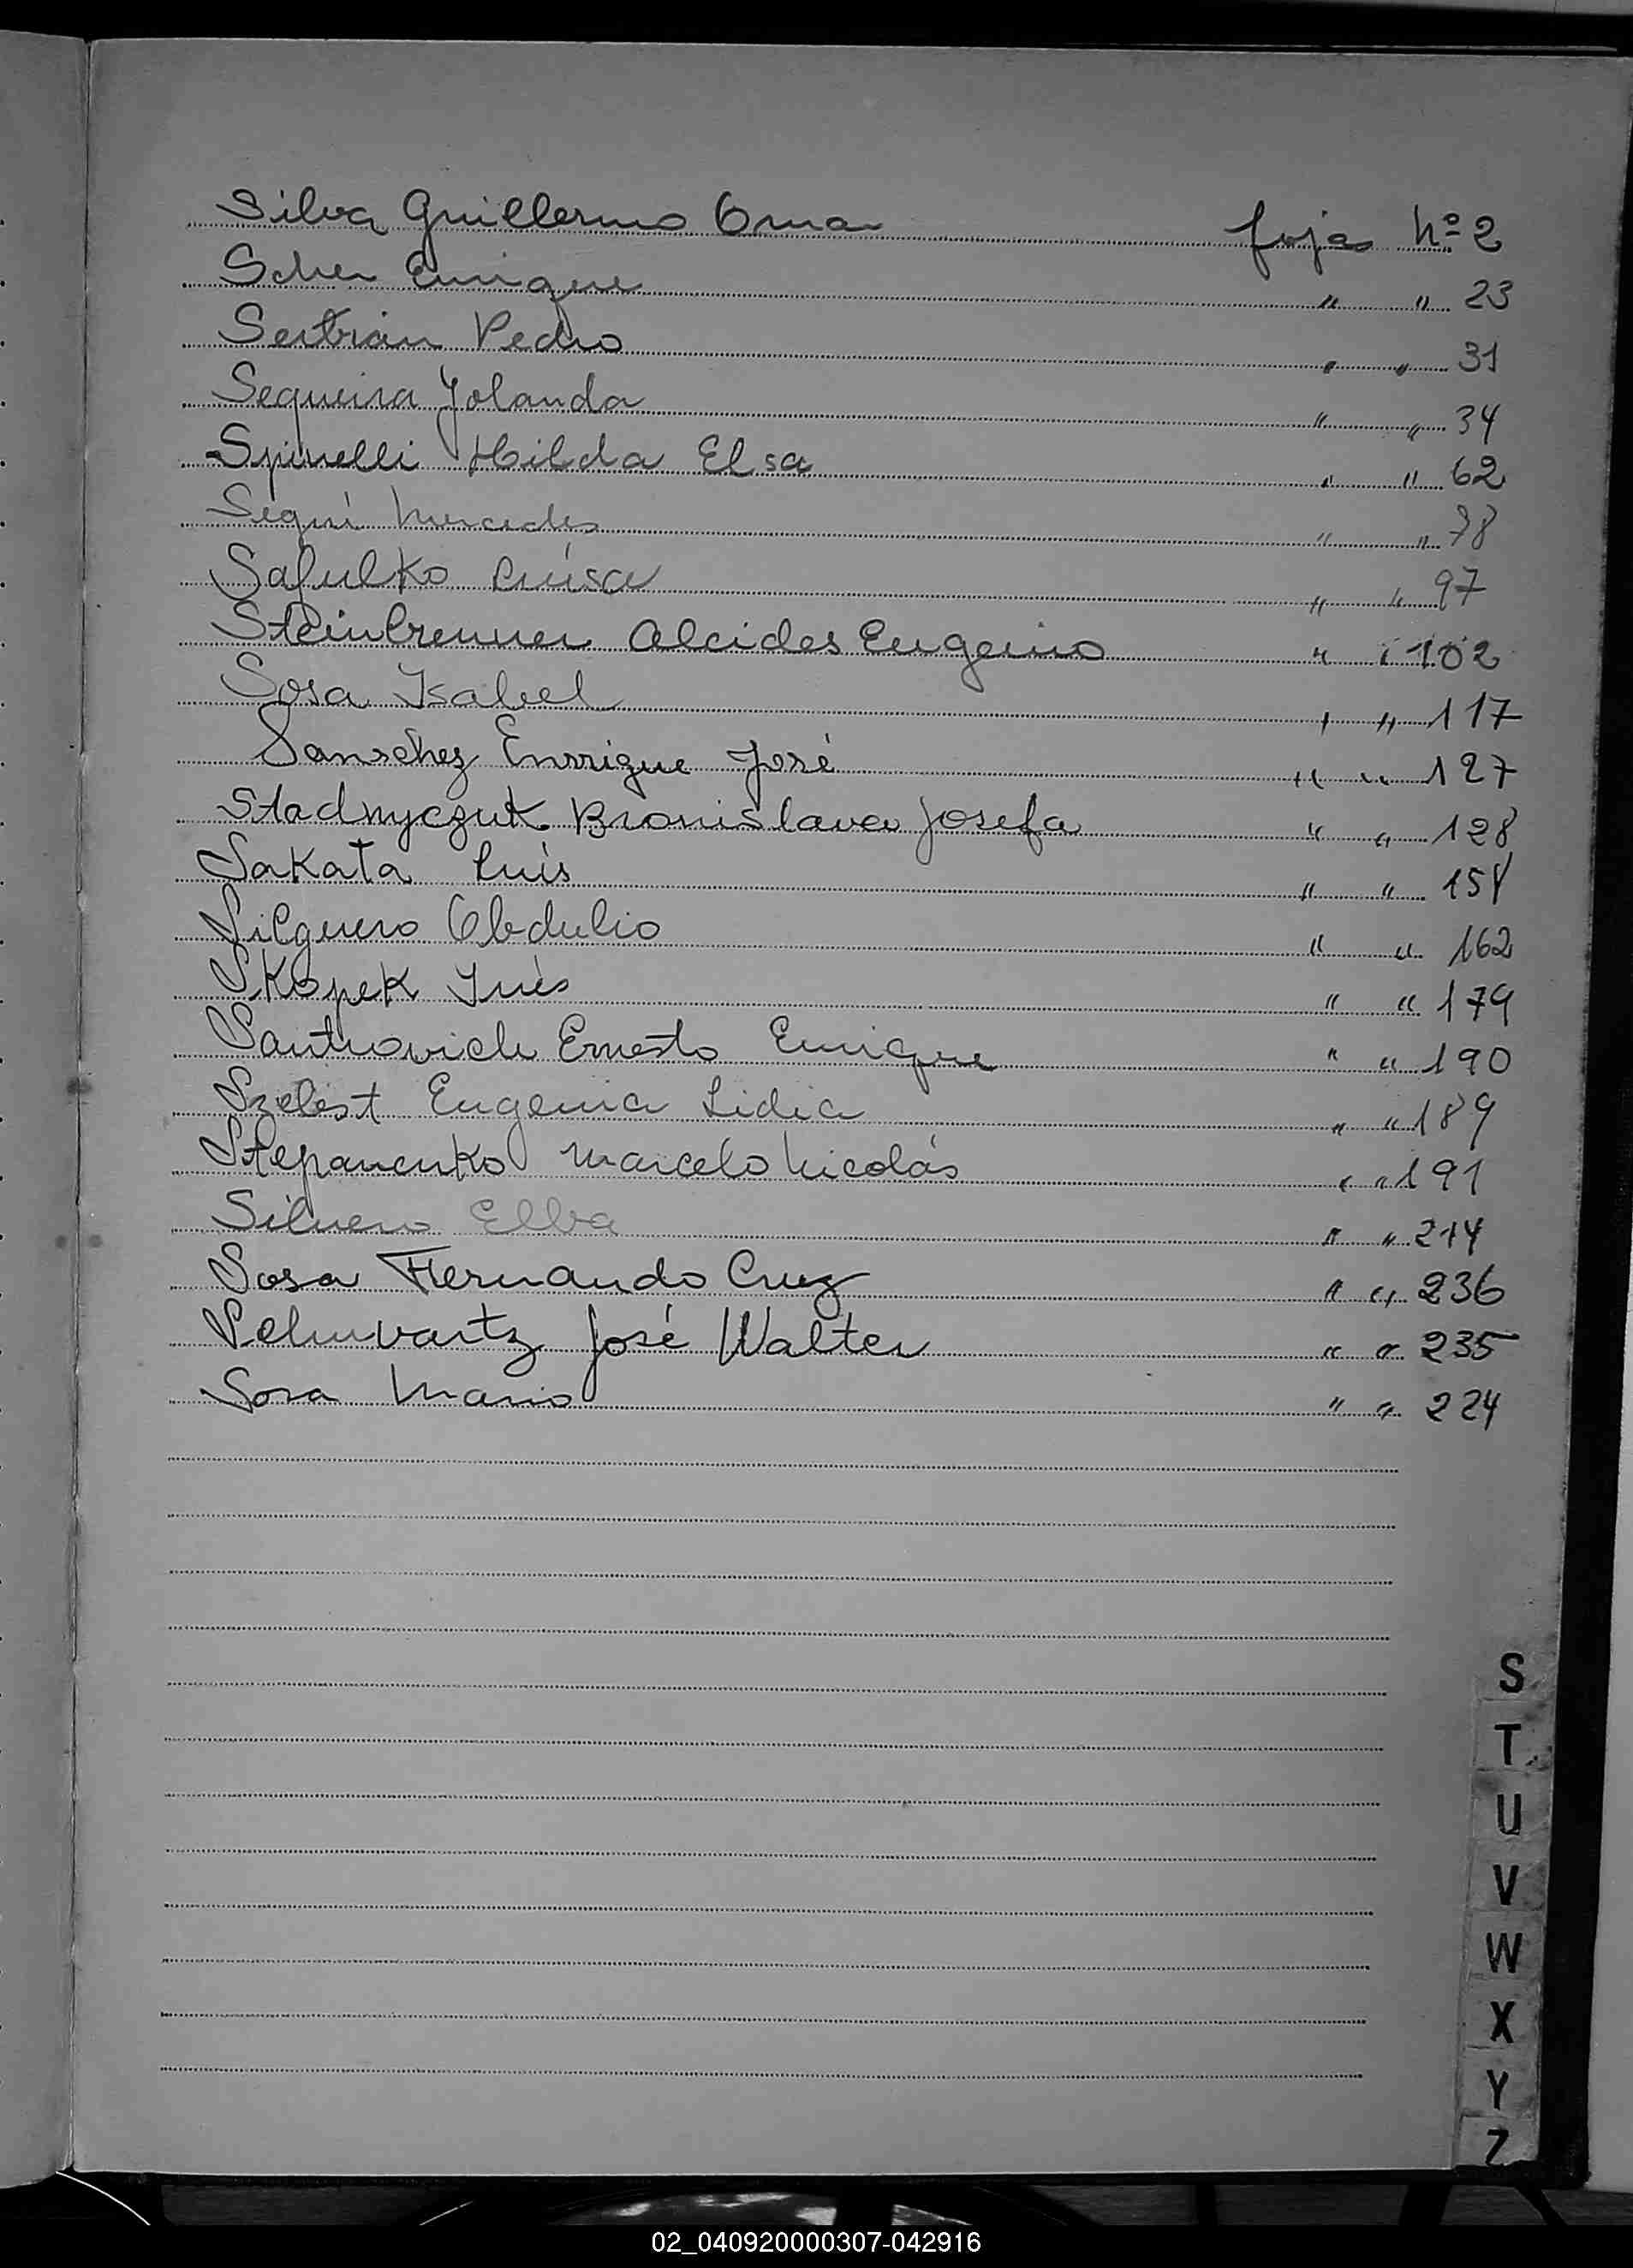 Silva Guillermo Omar fojas Nº 2
Scher Enrique " " 23
Sertrian Pedro " " 31
Sequeira Yolanda " " 34
Spinelli Hilda Elsa " " 62
Seguí Mercedes " " 78
Safulko Luisa " " 97
Steinbrenner Alcides Eugenio " " 102
Sosa Isabel " " 117
Sanschez Enrrique José " " 127
Stadnyczuk Bronislava Josefa " " 128
Sakata Luis " " 158
Silguero Obdulio " " 162
Skopek Inés " " 179
Santrovich Ernesto Enrique " " 190
Szelest Eugenia Lidia " " 189
Stepanenko Marcelo Nicolás " " 191
Silvero Elba " " 214
Sosa Hernando Cruz " " 236
Schwartz José Walter " " 235
Sosa Mario " " 224
S
T
U
V
W
X
Y
Z
02_040920000307-042916